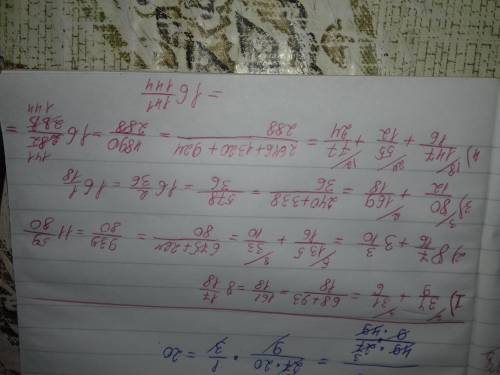 27·20/9 · 1/3 = 20
1) 34/9 + 31/6 = 68+93/18 = 161/18 = 8 17/18
2) 8 7/16 + 3 3/10 = 135/16 + 33/10 = 675+264/80 = 939/80 = 11 59/80
3) 80/12 + 169/18 = 240+338/36 = 578/36 = 16 2/36 = 16 1/18
4) 147/16 + 55/12 + 77/24 = 2646+1320+924/288 = 4890/288 = 16 282/288 =
= 16 141/144